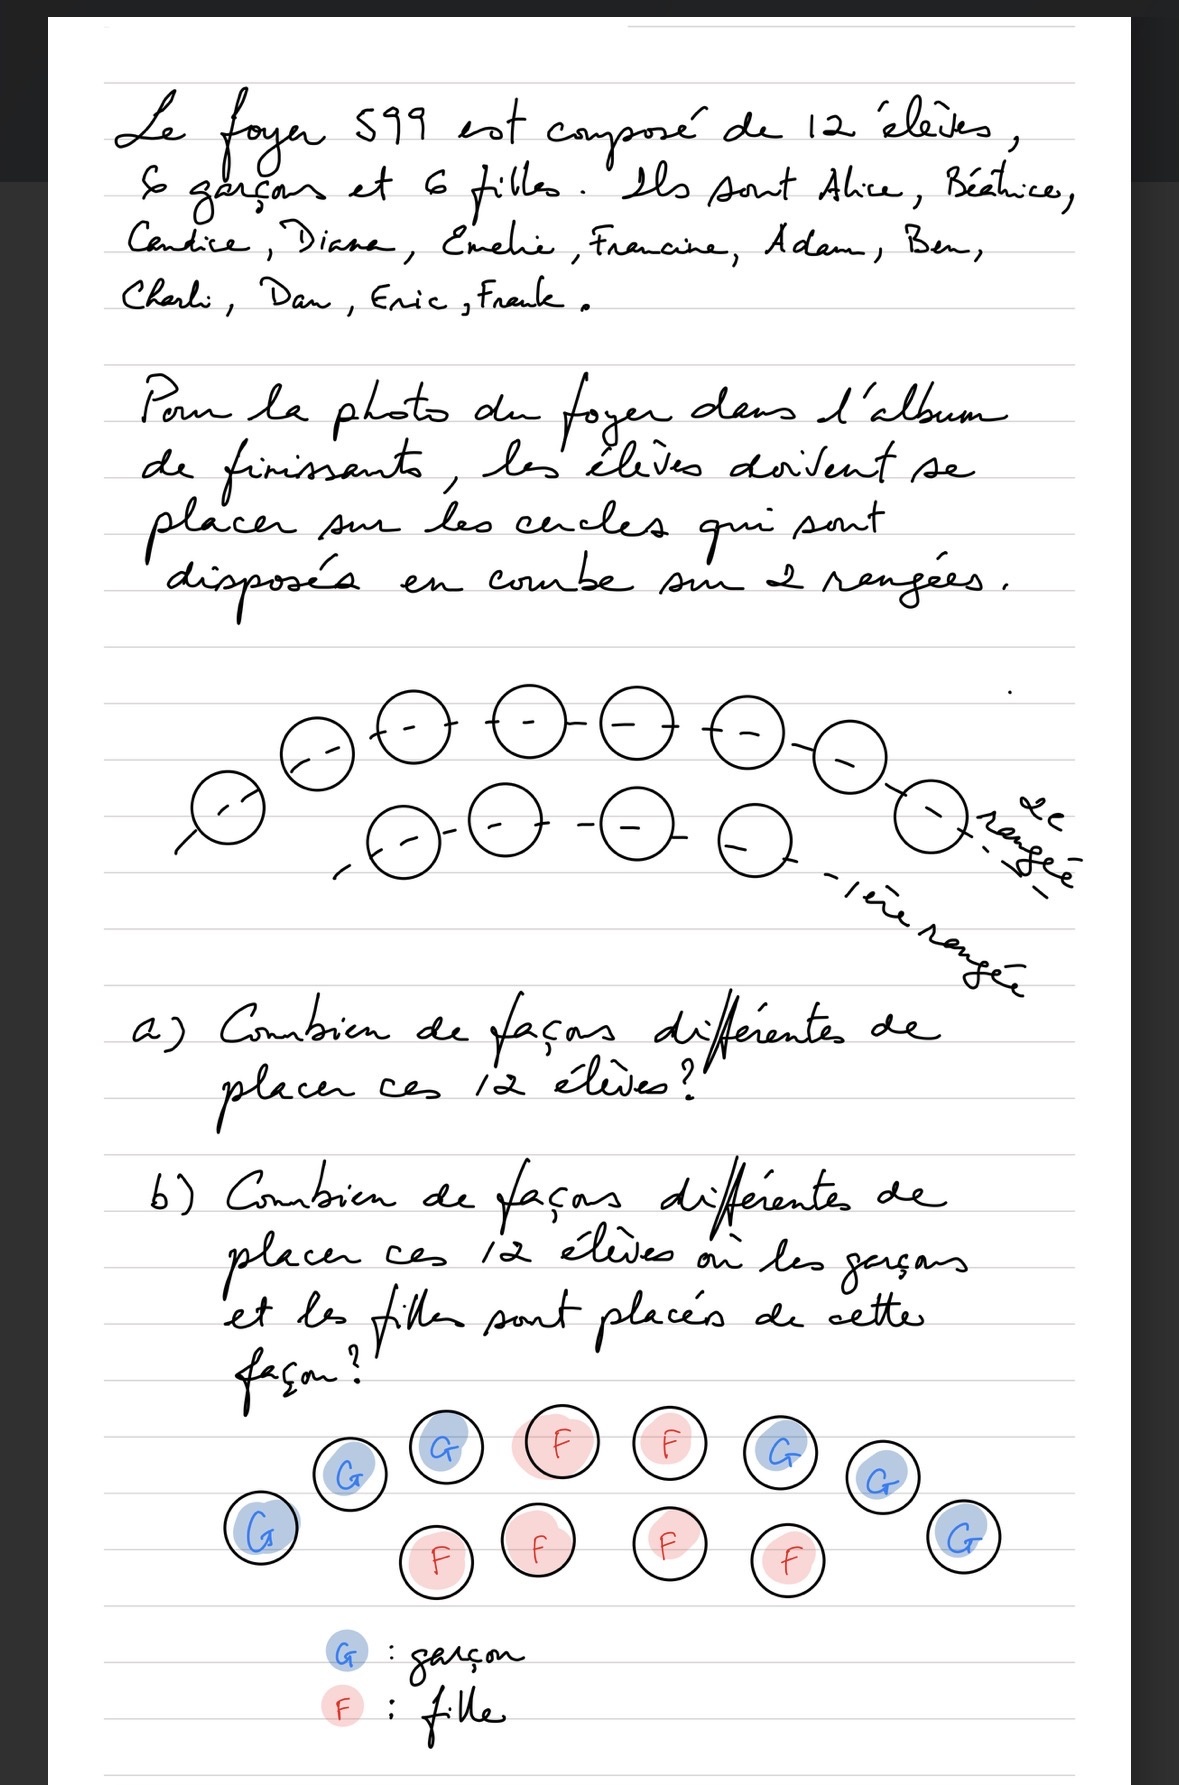 Le foyer 599 est composé de 12 élèves,
6 garçons et 6 filles. Ils sont Alice, Béatrice,
Candice, Diana, Emelie, Francine, Adam, Ben,
Charli, Dan, Eric, Frank.
Pour la photo du foyer dans l'album
de finissants, les élèves doivent se
placer sur les cercles qui sont
disposés en courbe sur 2 rangées.
2e
rangée
1ère rangée
a) Combien de façons différentes de
placer ces 12 élèves?
b) Combien de façons différentes de
placer ces 12 élèves où les garçons
et les filles sont placés de cette
façon?
G G G F F G G G
F F F F
G : garçon
F : fille